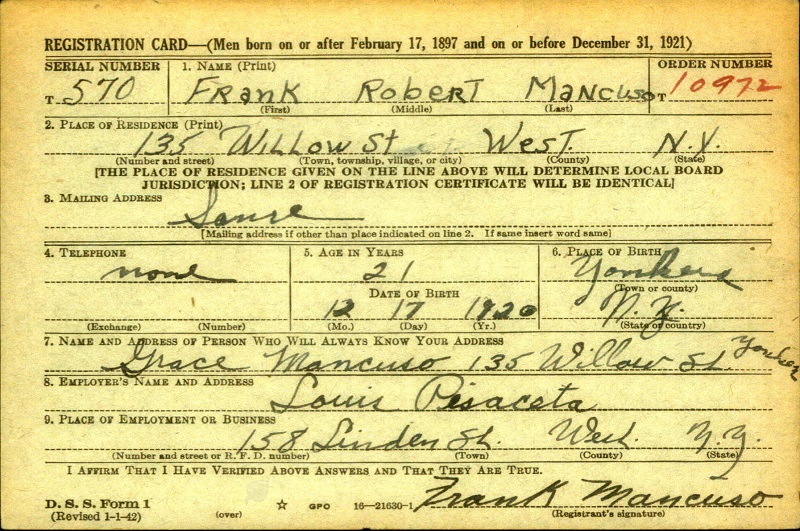 REGISTRATION CARD—(Men born on or after February 17, 1897 and on or before December 31, 1921)
SERIAL NUMBER 1. NAME (Print) ORDER NUMBER
T 570 FRANK ROBERT MANCUSO T 10972
(First) (Middle) (Last)
2. PLACE OF RESIDENCE (Print)
135 WILLOW St WEST. N.Y.
(Number and street) (Town, township, village, or city) (County) (State)
[THE PLACE OF RESIDENCE GIVEN ON THE LINE ABOVE WILL DETERMINE LOCAL BOARD
JURISDICTION; LINE 2 OF REGISTRATION CERTIFICATE WILL BE IDENTICAL]
3. MAILING ADDRESS
Same
[Mailing address if other than place indicated on line 2. If same insert word same]
4. TELEPHONE 5. AGE IN YEARS 6. PLACE OF BIRTH
none 21 Yonkers
DATE OF BIRTH (Town or county)
12 17 1920 N.Y.
(Exchange) (Number) (Mo.) (Day) (Yr.) (State or country)
7. NAME AND ADDRESS OF PERSON WHO WILL ALWAYS KNOW YOUR ADDRESS
Grace Mancuso 135 Willow St. Yonkers
8. EMPLOYER'S NAME AND ADDRESS
Louis Pisaceta
9. PLACE OF EMPLOYMENT OR BUSINESS
158 Linden St. West. N.Y.
(Number and street or R. F. D. number) (Town) (County) (State)
I AFFIRM THAT I HAVE VERIFIED ABOVE ANSWERS AND THAT THEY ARE TRUE.
D. S. S. Form 1
(Revised 1-1-42) (over) ☆ GPO 16—21630-1 Frank Mancuso
(Registrant's signature)